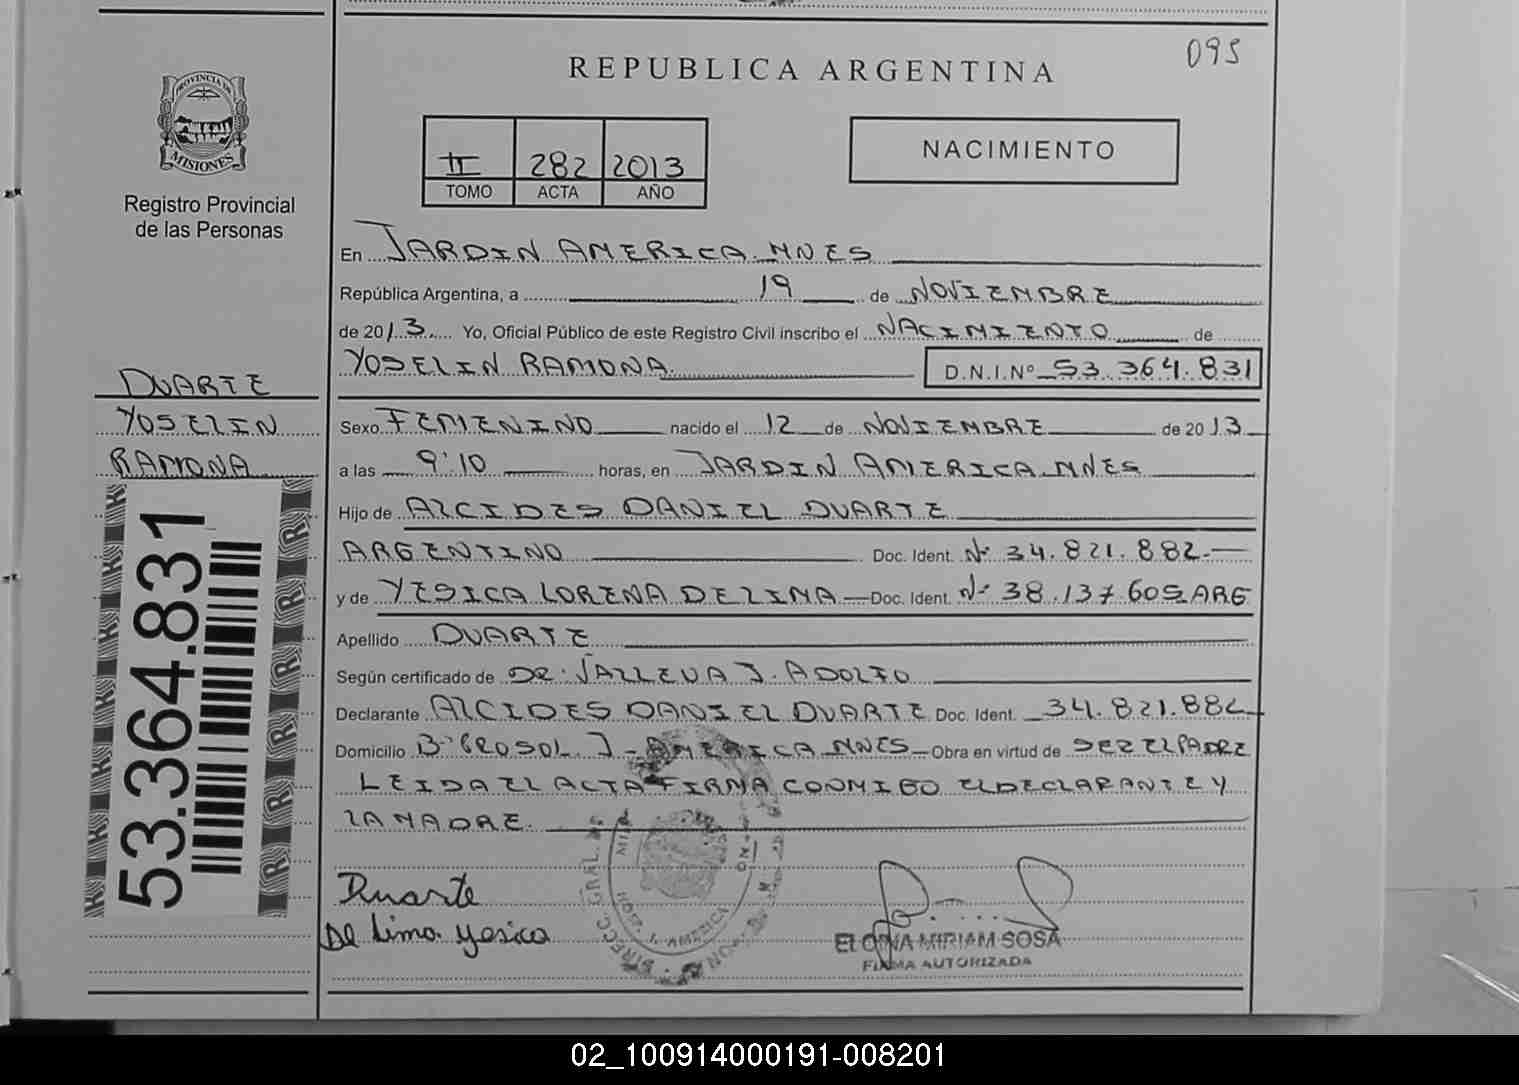 095
REPUBLICA ARGENTINA
PROVINCIA DE
MISIONES
Registro Provincial
de las Personas
II 282 2013
TOMO ACTA AÑO
NACIMIENTO
En JARDIN AMERICA. MNES
República Argentina, a 19 de NOVIEMBRE
de 2013 Yo, Oficial Público de este Registro Civil inscribo el NACIMIENTO de
YOSELIN RAMONA D.N.I.Nº 53.364.831
DUARTE
YOSELIN
RAMONA
53.364.831
Sexo FEMENINO nacido el 12 de NOVIEMBRE de 2013
a las 9:10 horas, en JARDIN AMERICA MNES
Hijo de ALCIDES DANIEL DUARTE
ARGENTINO Doc. Ident. Nº 34.821.882.-
y de YESICA LORENA DE LIMA Doc. Ident. Nº 38.137.605 ARG
Apellido DUARTE
Según certificado de DR. J. ADOLFO
Declarante ALCIDES DANIEL DUARTE Doc. Ident. 34.821.882
Domicilio J. AMERICA MNES Obra en virtud de SER EL PADRE
LEIDA EL ACTA FIRMA CONMIGO EL DECLARANTE Y
LA MADRE.
Duarte
De Lima Yesica
DIRECC. GRAL. DE
J. AMERICA
MIRIAM SOSA
FIRMA AUTORIZADA
02_100914000191-008201